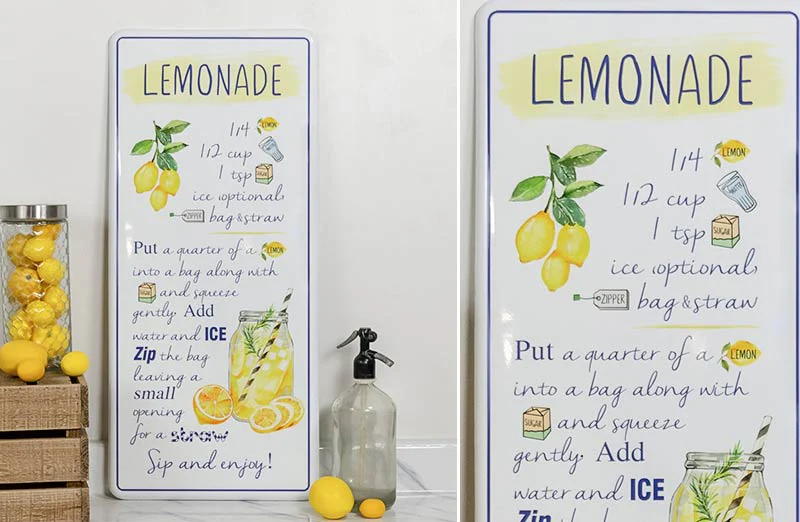 LEMONADE
1/4 LEMON
1/2 cup WATER
1 tsp SUGAR
ice (optional)
ZIPPER bag & straw
Put a quarter of a LEMON
into a bag along with
SUGAR and squeeze
gently. Add
water and ICE
Zip the bag
leaving a
small
opening
for a straw
Sip and enjoy!
LEMONADE
1/4 LEMON
1/2 cup WATER
1 tsp SUGAR
ice (optional)
ZIPPER bag & straw
Put a quarter of a LEMON
into a bag along with
SUGAR and squeeze
gently. Add
water and ICE
Zip the b